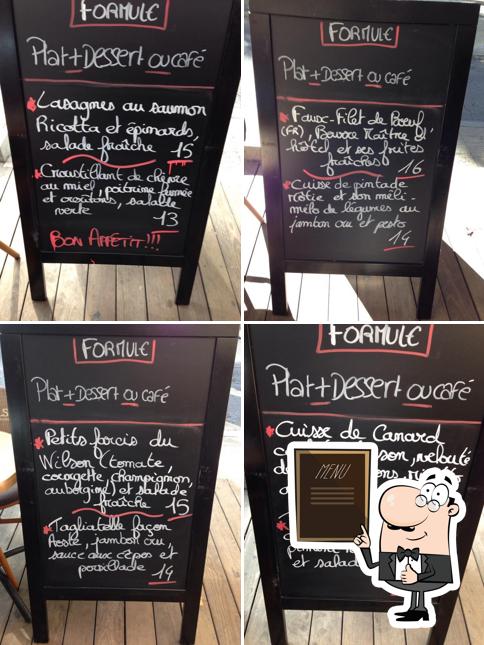 FORMULE
Plat+Dessert ou café
Lasagnes au saumon
Ricotta et épinards,
salade fraîche 15
Croustillant de chèvre
au miel, poitrine fumée
et croûtons, salade
verte 13
BON APPÉTIT!!!
FORMULE
Plat+Dessert ou café
Faux-Filet de Boeuf
(FR), Beurre Maître d'
hôtel et ses frites
fraîches 16
Cuisse de pintade
rôtie et son méli-
mélo de légumes au
jambon cru et pesto
14
FORMULE
Plat+Dessert ou café
Petits farcis du
Wilson (tomate,
courgette, champignon,
aubergine) et salade
fraîche 15
Tagliatelle façon
Resto, jambon cru,
sauce aux cèpes et
persillade 14
FORMULE
Plat+Dessert ou café
Cuisse de Canard
son, velouté
et salad
MENU